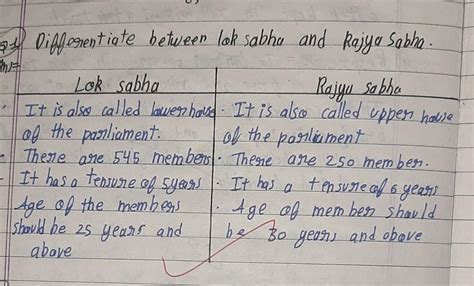 Q1) Differentiate between lok sabha and Rajya Sabha.
Ans=
Lok sabha
Rajya sabha
It is also called lower house
of the parliament.
There are 545 members
It has a tensure of 5 years
Age of the members
should be 25 years and
above
· It is also called upper house
of the parliament
· There are 250 member.
· It has a tensure of 6 years
· Age of member should
be 30 years and above